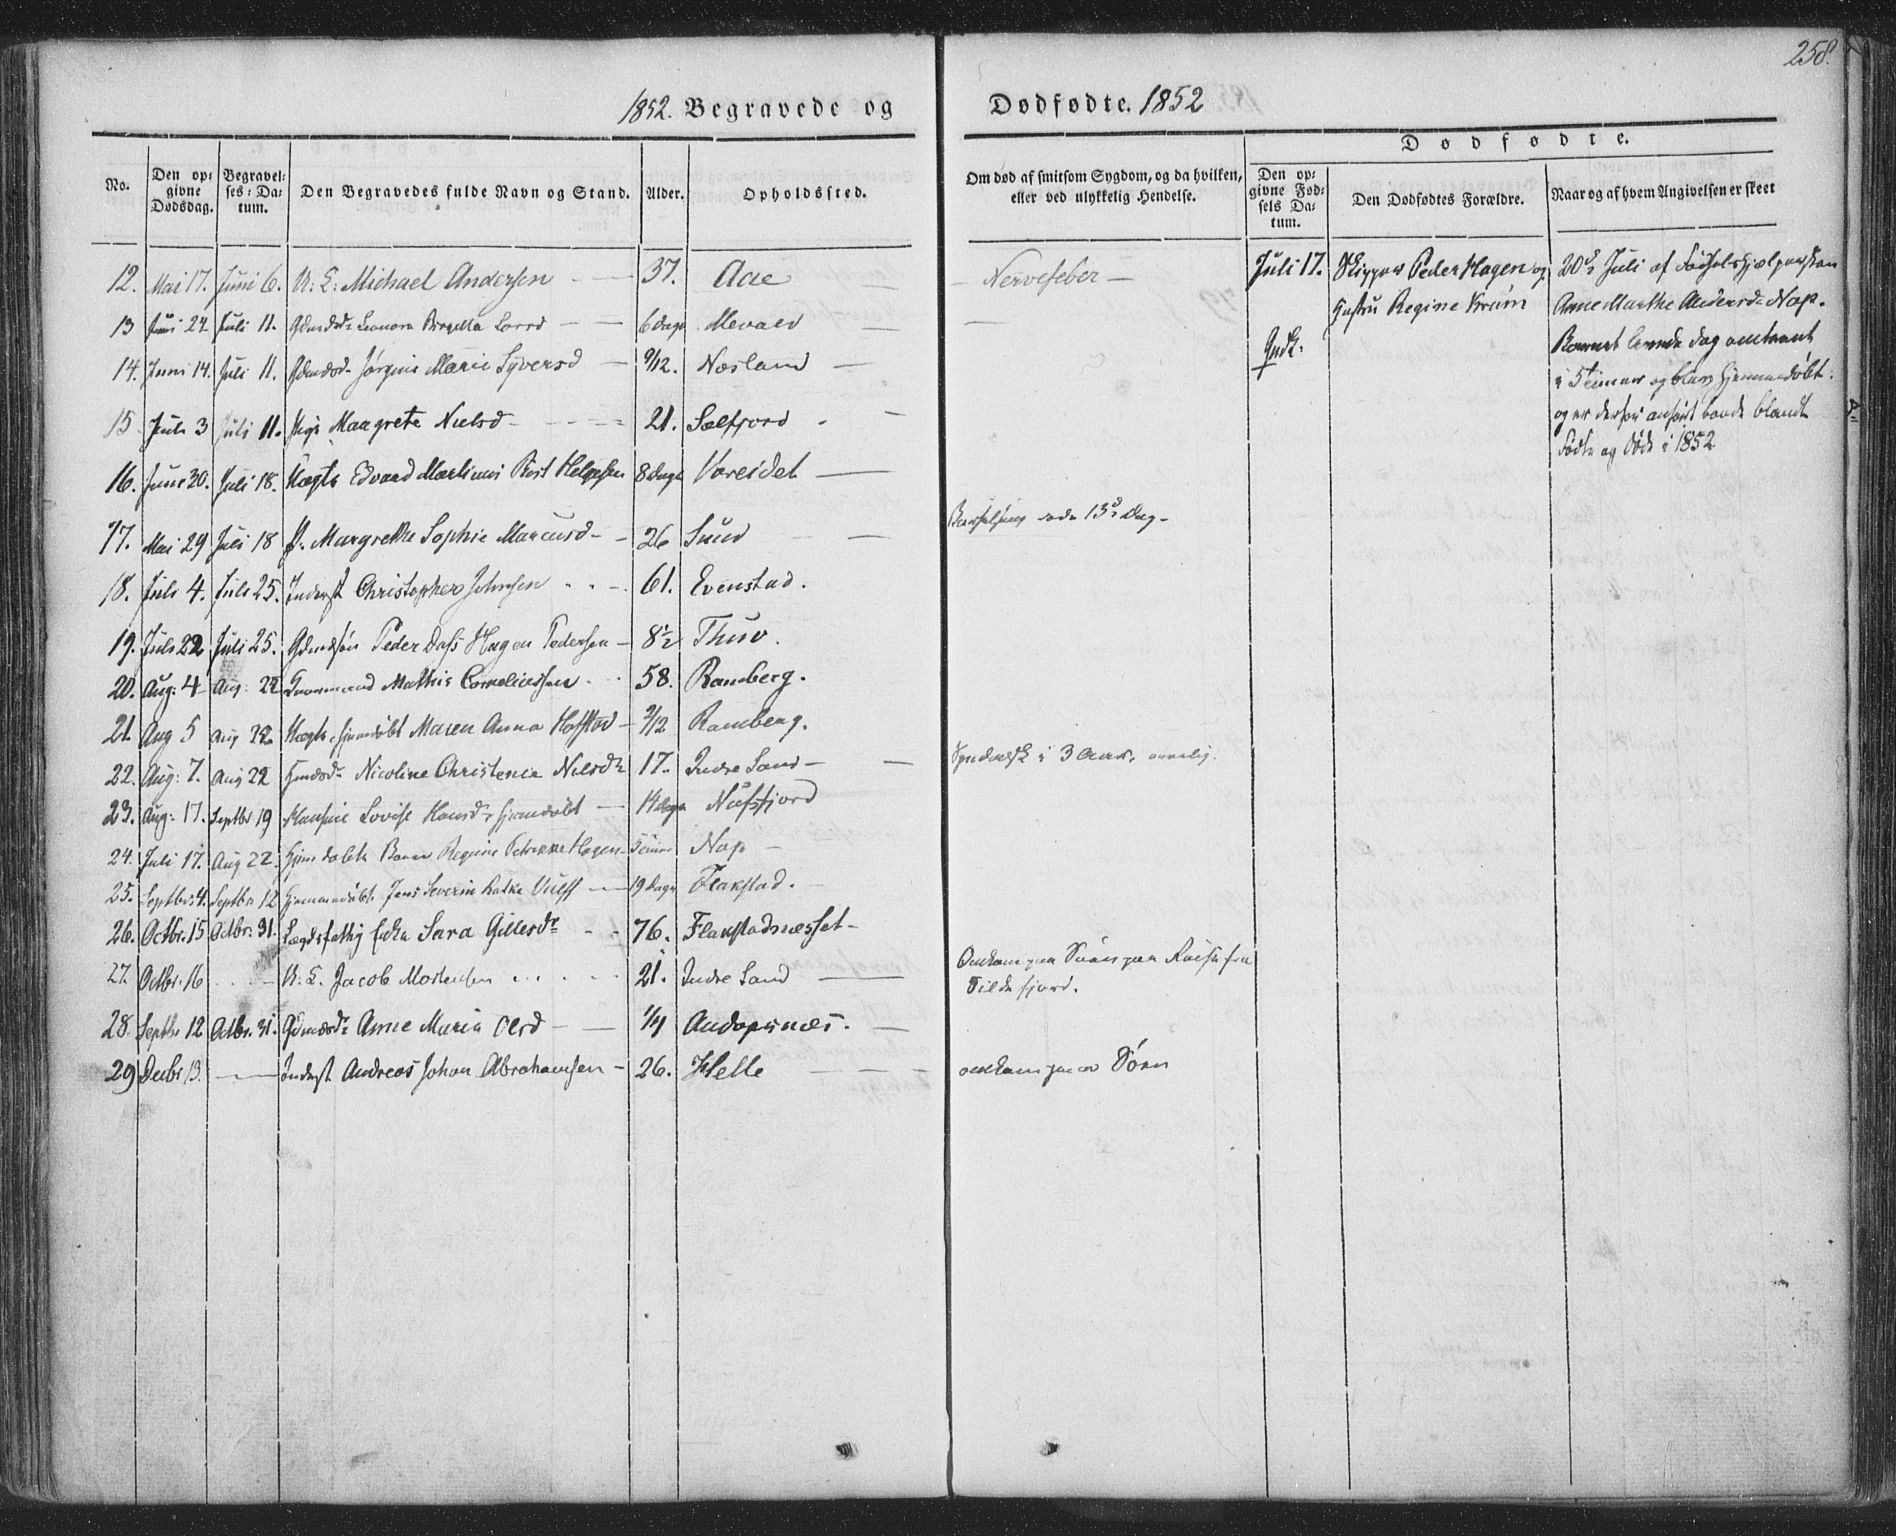 258.
1852. Begravede og Dødfødte. 1852
Dødfødte.
No. Den opgivne Dødsdag. Begravelses-Datum. Den Begravedes fulde Navn og Stand. Alder. Opholdssted. Om død af smitsom Sygdom, og da hvilken, eller ved ulykkelig Hendelse. Den opgivne Fødsels Datum. Den Dødfødtes Forældre. Naar og af hvem Angivelsen er skeet
12. Mai 17. Juni 6. U: K: Michael Andersen 37. Aae — Nervefeber —
13 Juni 24. Juli 11. Gdmdsdr Leonora Bergitta 6 dage Mevald
14. Juni 14. Juli 11. Gdmdsd. Jørgine Marie Syversd 9/12. Næsland
15. Juli 3 Juli 11. Pige Margrete Nielsd 21. Sælfjord
16. Juni 30. Juli 18. Uægte Edvard Martinus Rist Helgesen 8 dage Vareidet
17. Mai 29 Juli 18 P. Margrethe Sophie Marcusd 26 Sund Barselseng 13de Dag
18. Juli 4. Juli 25. Inderst Christopher Johnsen 61. Evenstad.
19. Juli 22 Juli 25. Gdmdsøn Peder Dass Hagen Pedersen 8½ Thuv.
20. Aug: 4 Aug: 22 Mathis Corneliussen 58. Ramberg.
21. Aug 5 Aug 22 Uægte, hjemdøbt Maren Anna Hofstad 9/12 Ramberg.
22. Aug: 7. Aug 22 Nicoline Christence Nilsdr 17. Indre Sand — i 3 Aar,
23. Aug: 17. Septbr 19 Hansine Lovise Hansdr hjemdøbt 14 dage Nufsfjord
24. Juli 17. Aug 22. Hjemdøbte Barn Regine Petrikke Hagen 5 timer Nap
25. Septbr. 4. Septbr 12 Hjemmedøbt Jens Severin Ratke Wulff 19 Dage Flakstad.
26. Octbr. 15 Octbr. 31. Lægdsfattig Enke Sara Gillesdr 76. Flakstadnæsset
27. Octbr. 16 U. K. Jacob Mortensen 21. Indre Sand — Omkom paa Søen paa Reise fra
Sildefjord.
28. Septbr 12 Octbr. 31. Gdmdsdr Anne Maria Olsd 1/4 Andopsnæs.
29 Decbr 13. — Inderst Andreas Johan Abrahamsen 26. Helle omkom paa Søen
Juli 17. Skipper Peder Hagen og 20de Juli af Fødselshjælpersken
Hustru Regine Krum Anne Marthe Andersdr Nap.
Gudt. Barnet levende dog omtrent
i 5 timer og blev hjemmedøbt.
og er derfor anført baade blandt
Fødte og Døde i 1852